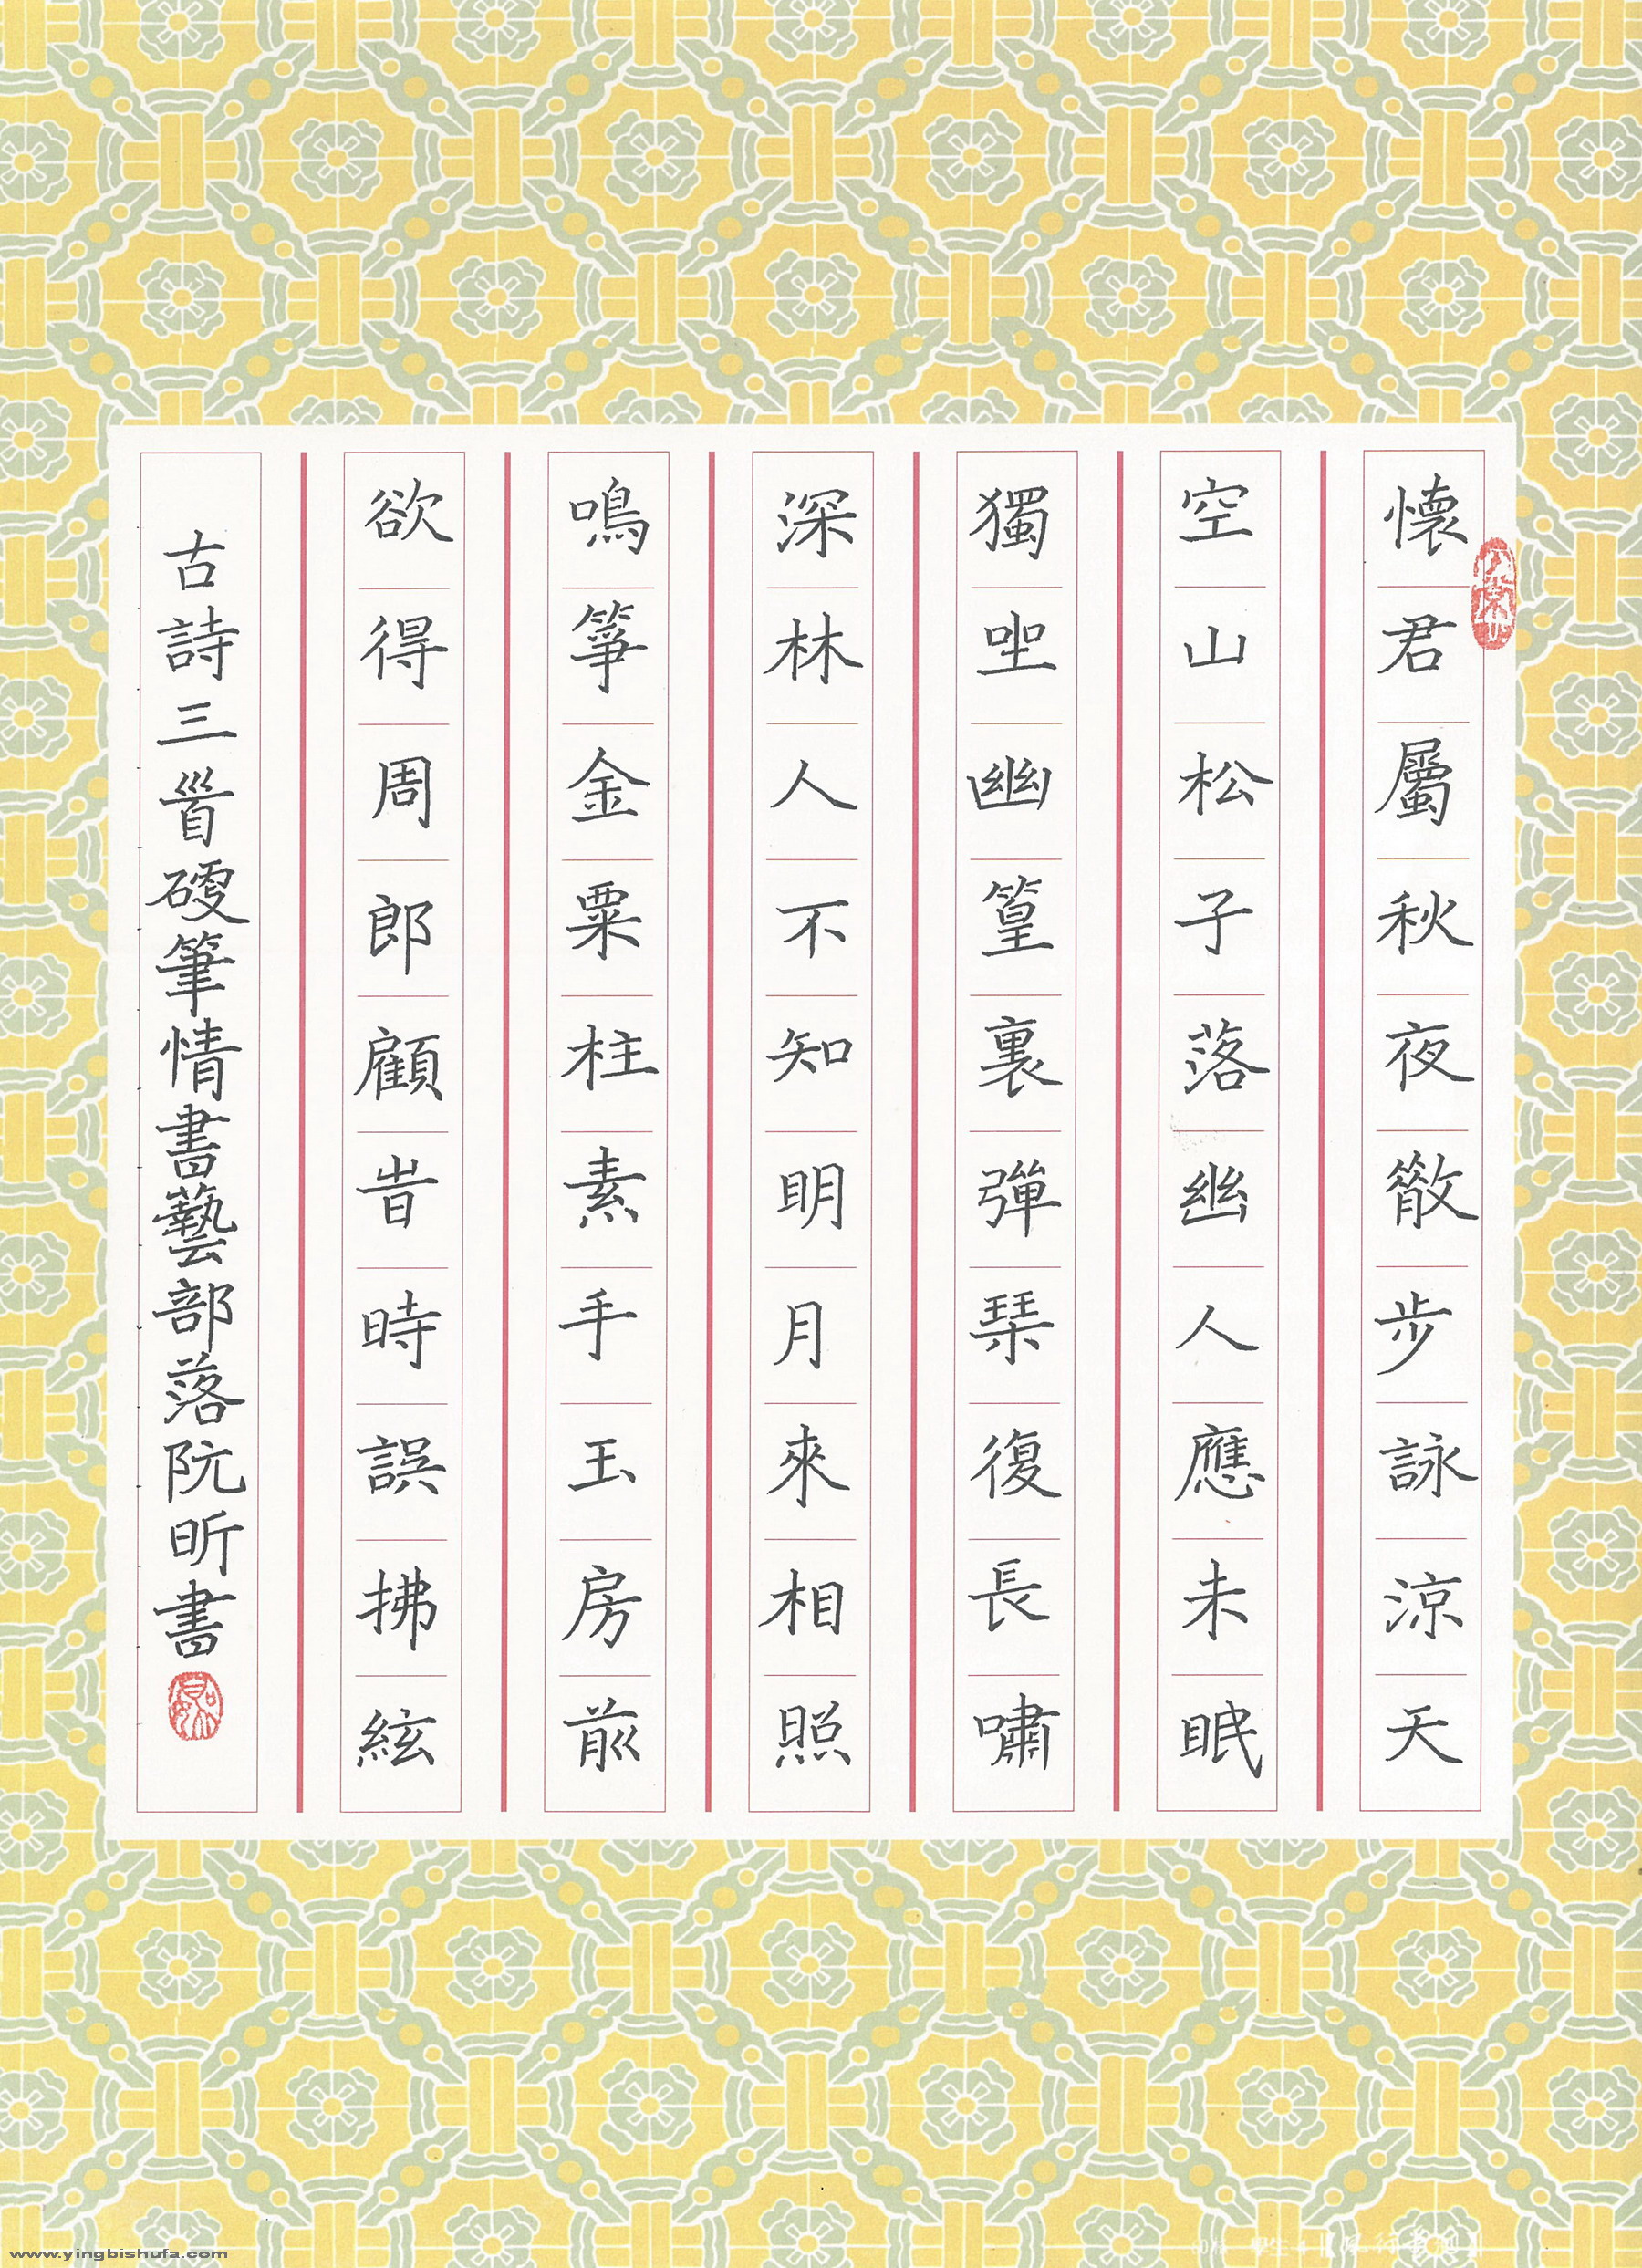 懷君屬秋夜散步詠涼天
空山松子落幽人應未眠
獨坐幽篁裏彈琴復長嘯
深林人不知明月來相照
鳴箏金粟柱素手玉房前
欲得周郎顧時時誤拂絃
古詩三首硬筆情書藝部落阮昕書
www.yingbishufa.com